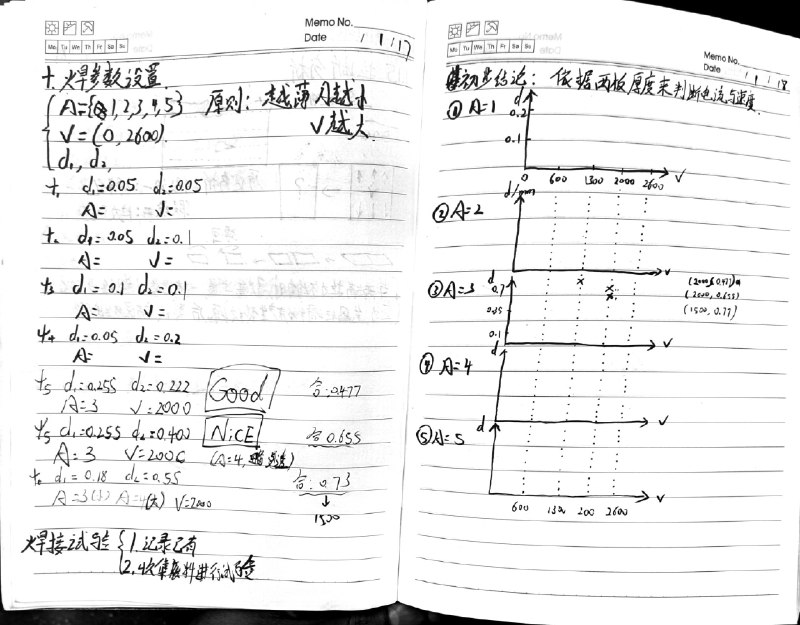 Memo No.
Date 1/1/17
Mo Tu We Th Fr Sa Su
十. 焊参数设置
A={0,1,2,3,4,5} 原则: 越薄 A越小
V=(0,2600). V越大
d₁, d₂,
t₁ d₁=0.05 d₂=0.05
A= V=
t₂ d₁=0.05 d₂=0.1
A= V=
t₃ d₁=0.1 d₂=0.1
A= V=
t₄ d₁=0.05 d₂=0.2
A= V=
t₅ d₁=0.255 d₂=0.222 Good 合:0.477
A=3 V=2000
t₅ d₁=0.255 d₂=0.400 NiCE 合0.655
A=3 V=2000 (A=4,
t₆ d₁=0.18 d₂=0.55 合:0.73
A=3(小) A=4(大) V=2000 ↓
1500
焊接试验 { 1.记录已有
2.收集废料进行试验
Memo No.
Date 1/1/18
Mo Tu We Th Fr Sa Su
初步结论: 依据两板厚度来判断电流与速度.
① A=1
d
0.2
0.1
0 600 1300 2000 2600 V
② A=2
d/mm
V
③ A=3
d
0.7
0.1
V
(2000,0.477)
(2000,0.655)
(1500,0.77)
④ A=4
d
V
⑤ A=5
d
V
600 1300 200 2600